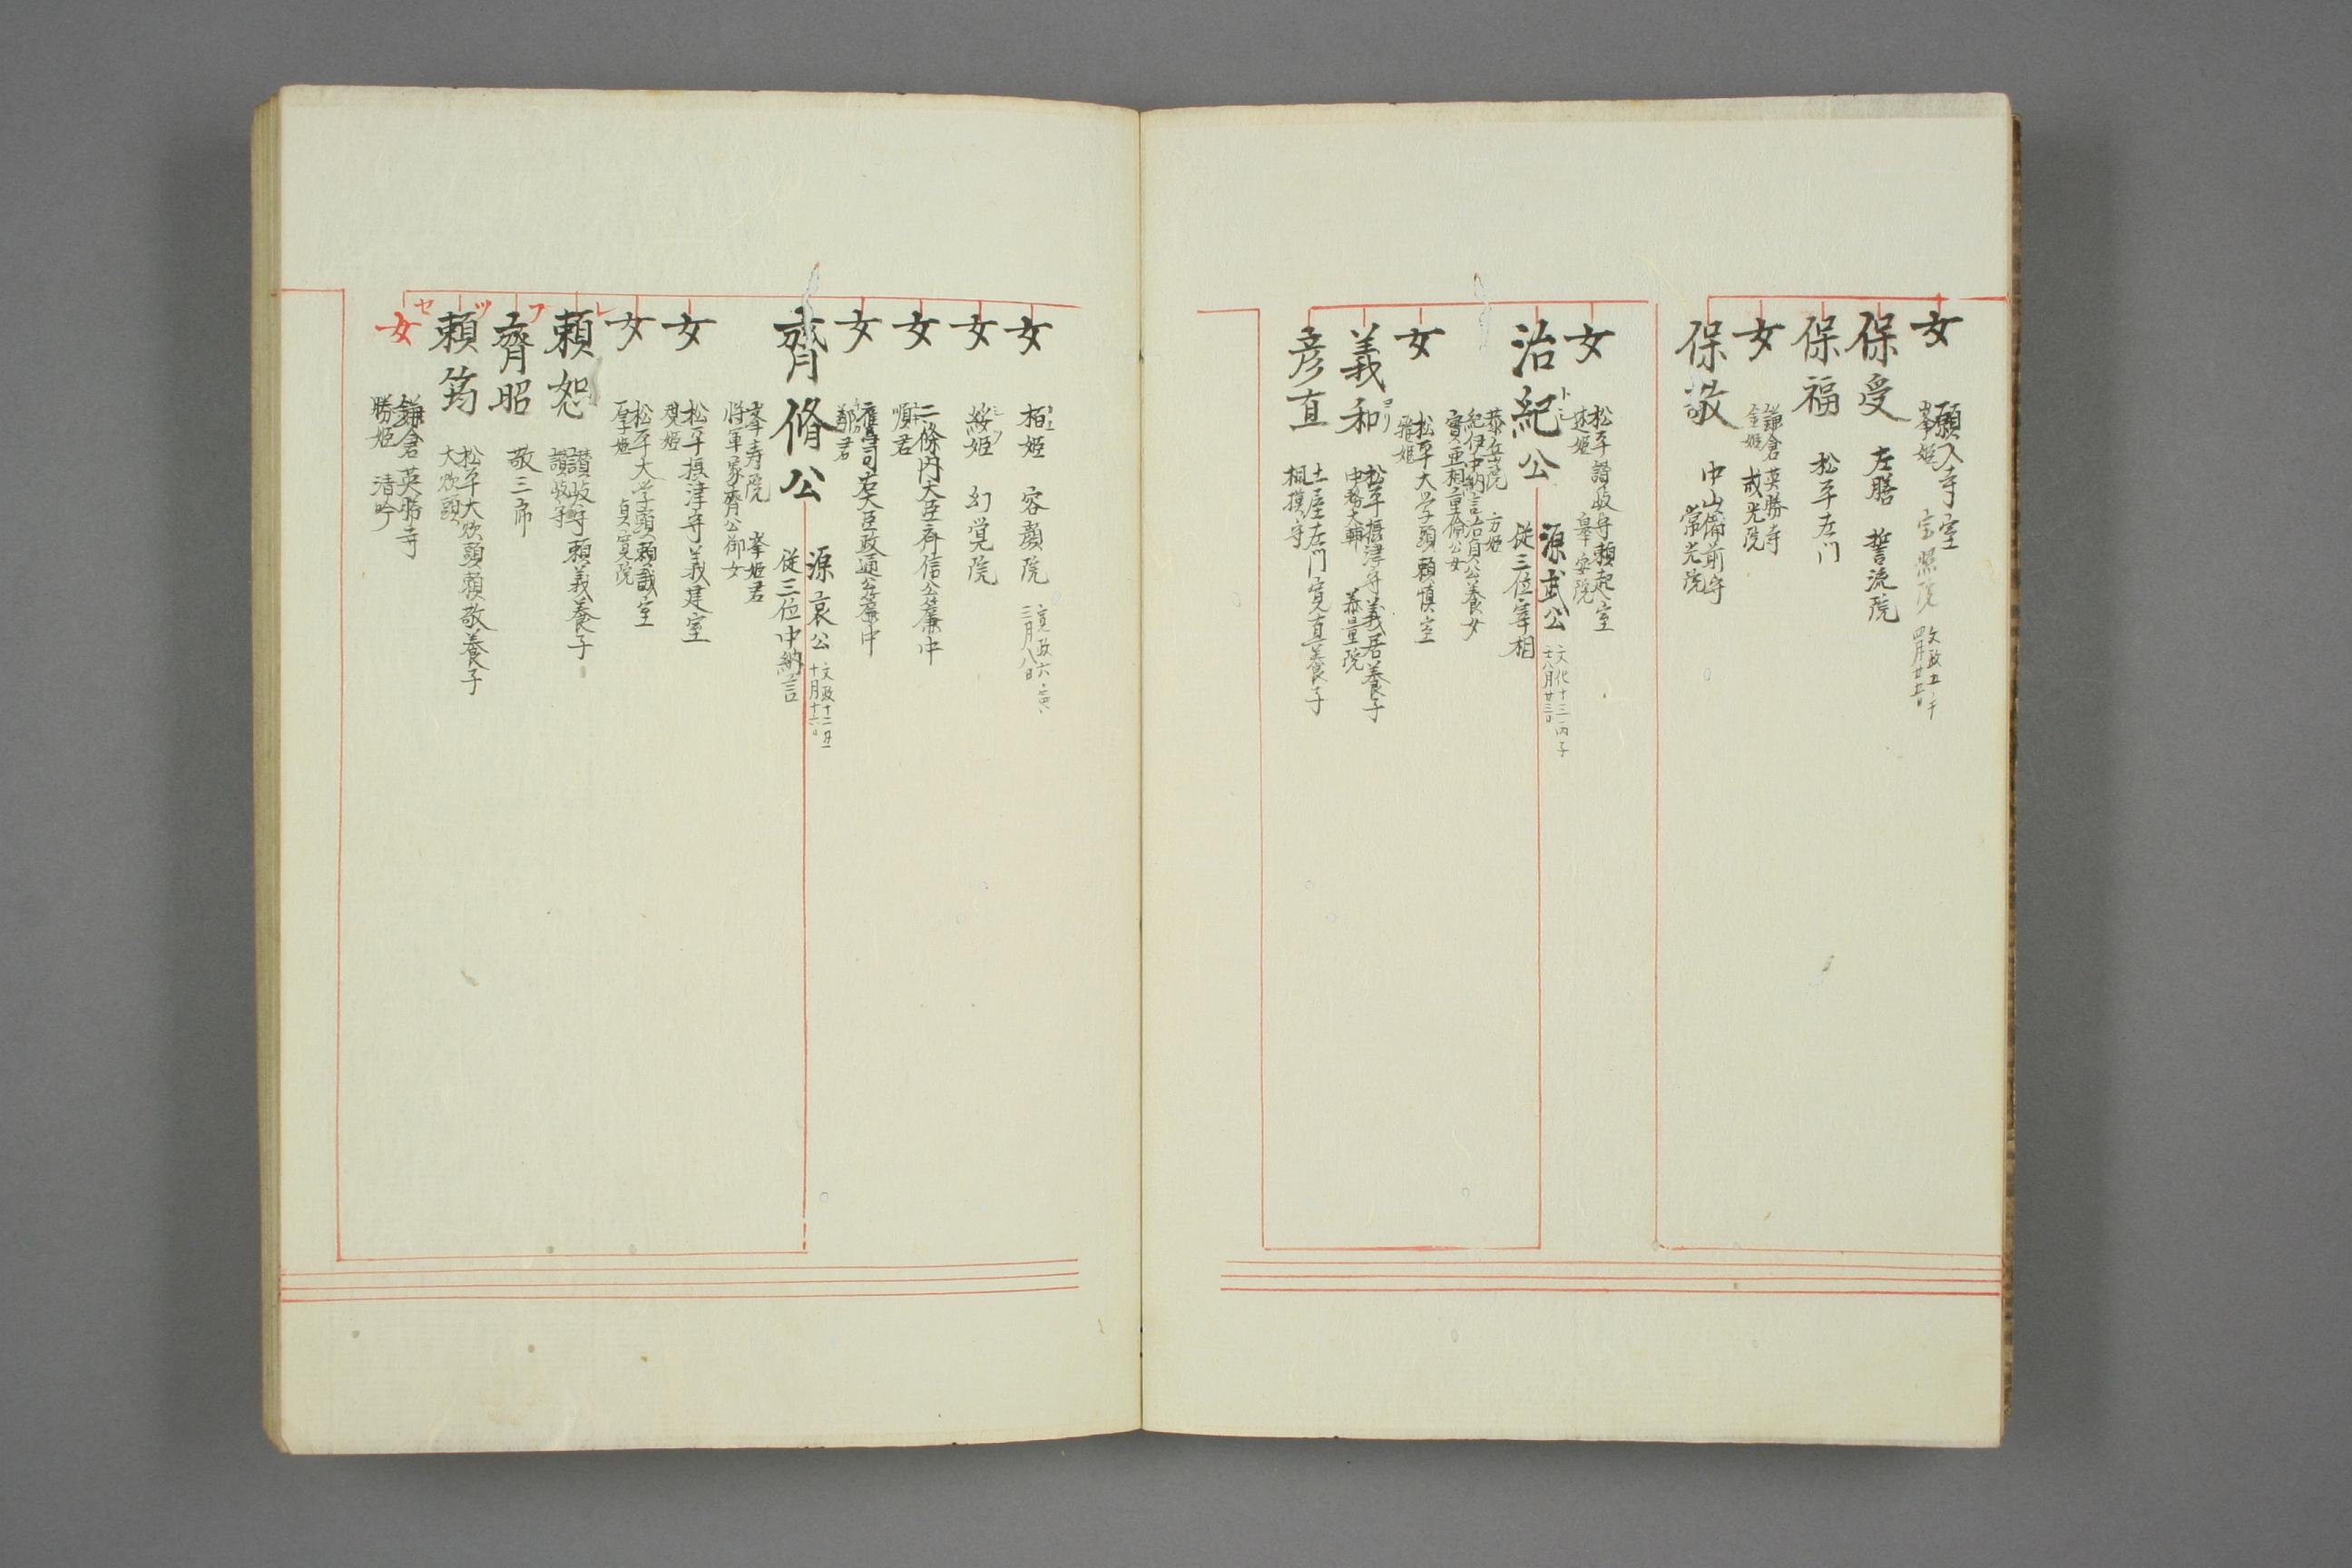 女
願入寺室
峯姫
宝照院
文政五
保受
左膳
誓流院
保福
松平左門
女
鎌倉英勝寺
金姫
戒光院
保敬
中山備前守
常光院
女
松平讃岐守頼起室
述姫
皐安院
治紀公
トシ
源武公
従三位宰相
文化十三丙子
八月廿三日
恭岳院
方姫
紀伊中納言治貞公養女
実亜相重倫公女
女
松平大学頭頼慎室
雅姫
義和
ヨリ
松平摂津守義居養子
中務大輔
恭量院
彦直
土屋左門寛直養子
相摸守
女
栢姫
容顔院
寛政六
三月八日
女
綏姫
幻覚院
女
二條内大臣斉信公簾中
順君
女
鷹司右大臣政通公簾中
鄰君
齊脩公
源哀公
従三位中納言
文政十二己丑
十月十六日
峯寿院
峯姫君
将軍家齊公御女
女
松平摂津守義建室
規姫
女
松平大学頭頼誠室
厚姫
貞寛院
レ
頼恕
讃岐守頼義養子
讃岐守
フ
齊昭
敬三郎
ツ
頼筠
松平大炊頭頼敬養子
大炊頭
セ
女
鎌倉英勝寺
勝姫
清吟